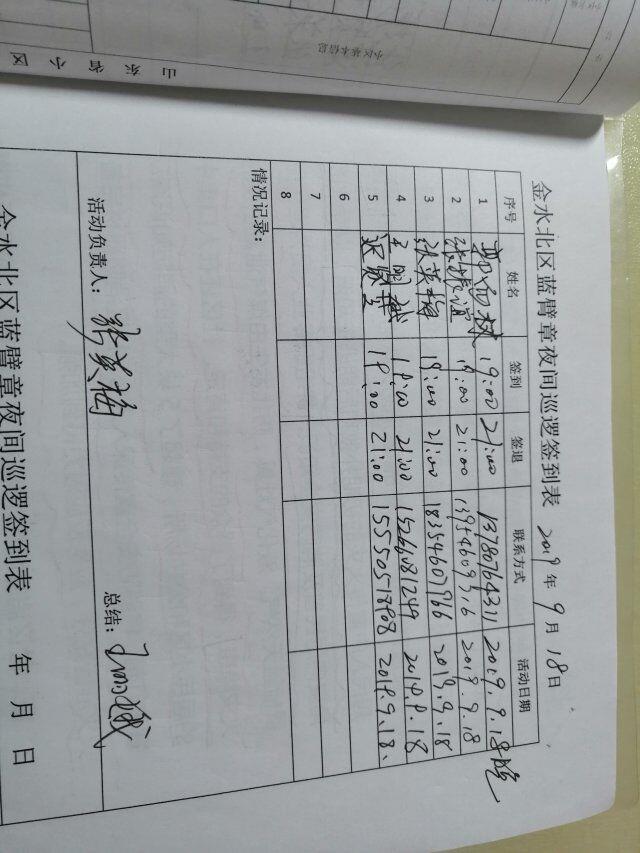 小区基本信息
山东省小区
金水北区蓝臂章夜间巡逻签到表 2019年9月18日
序号 姓名 签到 签退 联系方式 活动日期
1 19:00 21:00 13780764311 2019.9.18晚
2 19:00 21:00 2019.9.18
3 张英梅 19:00 21:00 18354607966 2019.9.18
4 19:00 21:00 15266081249 2019.9.18
5 19:00 21:00 15550518908 2019.9.18.
6
7
8
情况记录：
活动负责人：张英梅 总结：
金水北区蓝臂章夜间巡逻签到表 年 月 日